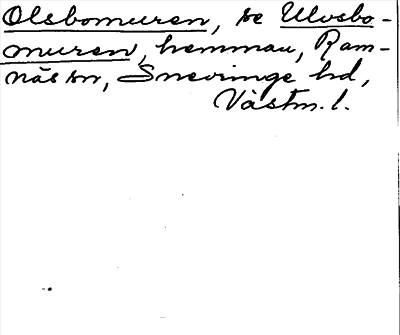 Olsbomuren, se Ulvsbo-
muren, hemman, Ram-
näs sn, Snevringe hd,
Västm. l.